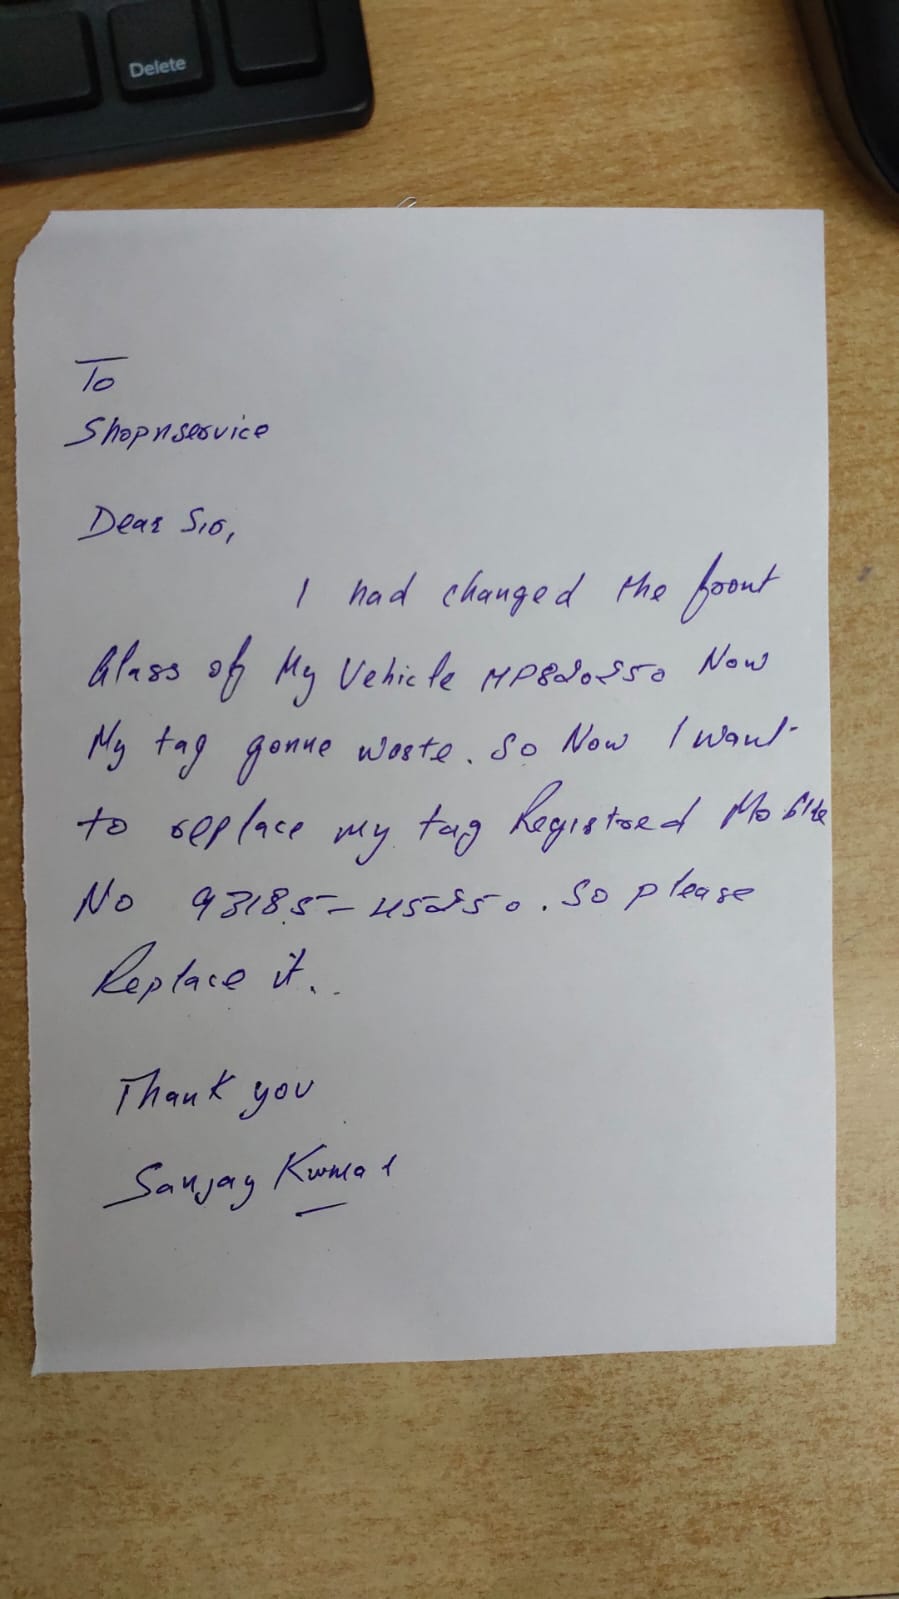 Delete
To
Shopnservice
Dear Sir,
I had changed the front
Glass of My Vehicle Now
My tag gonne waste. So Now I want
to replace my tag Registred Mobile
No 93185-45250. So please
Replace it..
Thank you
Sanjay Kumar